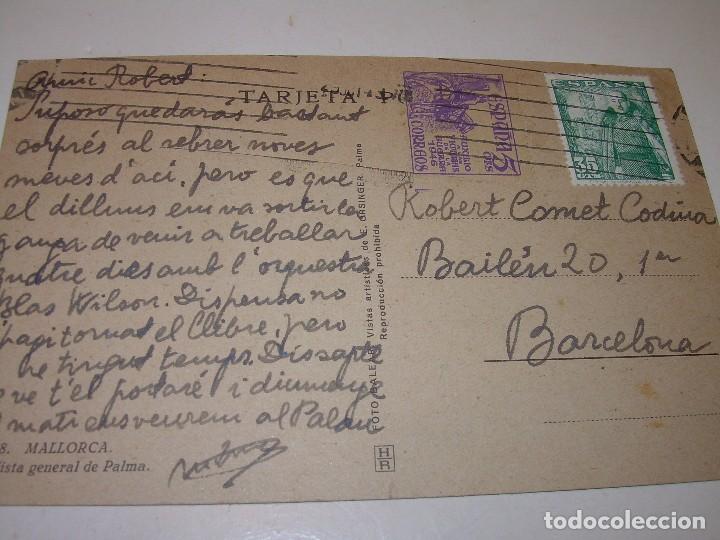 Amic Robert:
TARJETA PO
Suposo quedaràs bastant
sorprés al rebrer noves
meves d'ací, pero es que
el dilluns em va sortir la
ganga de venir a treballar
quatre dies amb l'orquestra
Blas Wilson. Dispensa no
hagi tornat el llibre, pero
he tingut temps. Dissapte
ve t'el portaré i diumenge
mati ens veurem al Palau
8. MALLORCA.
ista general de Palma.
FOTO BALE Vistas artísticas de E. ORSINGER, Palma
Reproducción prohibida
HR
ESPAÑA 5 CTS
AUXILIO
VICTIMAS
DE LA
GUERRA
1946
CORREOS
35
Robert Comet Codina
Bailén 20, 1er
Barcelona
todocoleccion
todocoleccion.net